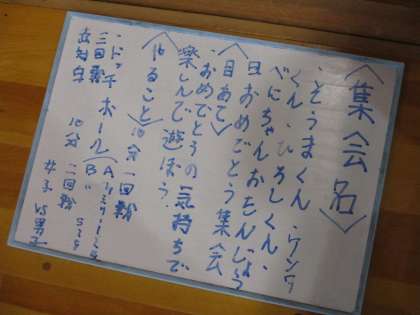 〈集会名〉
・そうまくん・ケンタ
くん・ひろしくん・
べにちゃんおたんじょう
日おめでとう集会
〈目あて〉
・おめでとうの気持ちで
楽しんで遊ぼう。
〈やること〉
・ドッチボール
10分 一回戦
10分 二回戦
女子VS男子
三回戦